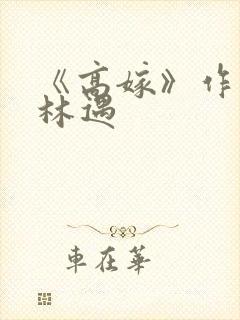 《高嫁》作
林遇
車在華